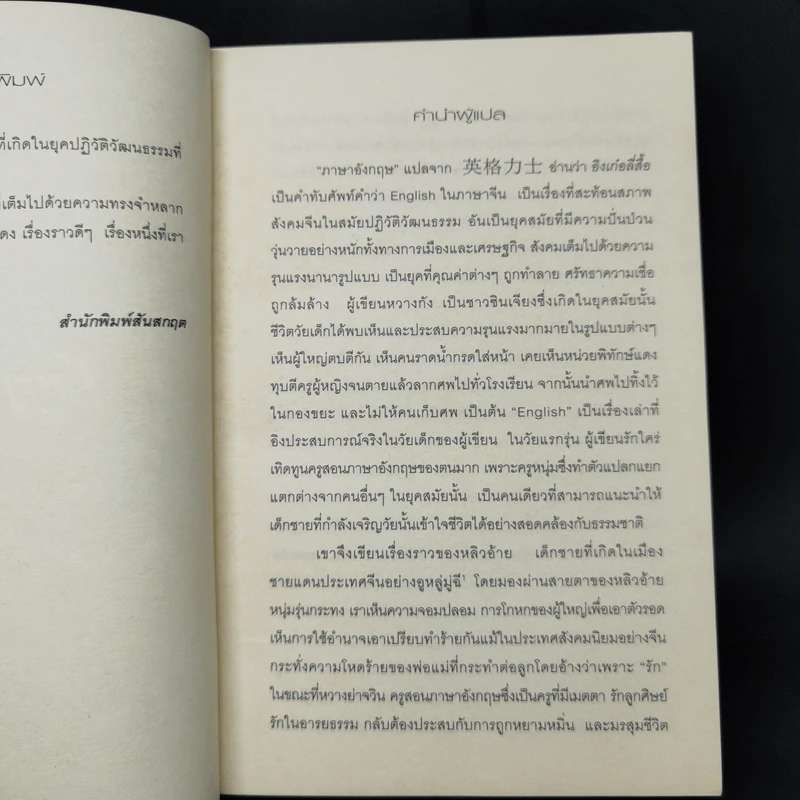 พิมพ์
ที่เกิดในยุคปฏิวัติวัฒนธรรมที่
เต็มไปด้วยความทรงจำหลาก
แดง เรื่องราวดีๆ เรื่องหนึ่งที่เรา
สำนักพิมพ์สันสกฤต
คำนำผู้แปล
"ภาษาอังกฤษ" แปลจาก 英格力士 อ่านว่า อิงเก๋อลี่สื้อ
เป็นคำทับศัพท์คำว่า English ในภาษาจีน เป็นเรื่องที่สะท้อนสภาพ
สังคมจีนในสมัยปฏิวัติวัฒนธรรม อันเป็นยุคสมัยที่มีความปั่นป่วน
วุ่นวายอย่างหนักทั้งทางการเมืองและเศรษฐกิจ สังคมเต็มไปด้วยความ
รุนแรงนานารูปแบบ เป็นยุคที่คุณค่าต่างๆ ถูกทำลาย ศรัทธาความเชื่อ
ถูกล้มล้าง ผู้เขียนหวางกัง เป็นชาวซินเจียงซึ่งเกิดในยุคสมัยนั้น
ชีวิตวัยเด็กได้พบเห็นและประสบความรุนแรงมากมายในรูปแบบต่างๆ
เห็นผู้ใหญ่ตบตีกัน เห็นคนราดน้ำกรดใส่หน้า เคยเห็นหน่วยพิทักษ์แดง
ทุบตีครูผู้หญิงจนตายแล้วลากศพไปทั่วโรงเรียน จากนั้นนำศพไปทิ้งไว้
ในกองขยะ และไม่ให้คนเก็บศพ เป็นต้น "English" เป็นเรื่องเล่าที่
อิงประสบการณ์จริงในวัยเด็กของผู้เขียน ในวัยแรกรุ่น ผู้เขียนรักใคร่
เทิดทูนครูสอนภาษาอังกฤษของตนมาก เพราะครูหนุ่มซึ่งทำตัวแปลกแยก
แตกต่างจากคนอื่นๆ ในยุคสมัยนั้น เป็นคนเดียวที่สามารถแนะนำให้
เด็กชายที่กำลังเจริญวัยนั้นเข้าใจชีวิตได้อย่างสอดคล้องกับธรรมชาติ
เขาจึงเขียนเรื่องราวของหลิวอ้าย เด็กชายที่เกิดในเมือง
ชายแดนประเทศจีนอย่างอูหลู่มู่ฉี¹ โดยมองผ่านสายตาของหลิวอ้าย
หนุ่มรุ่นกระทง เราเห็นความจอมปลอม การโกหกของผู้ใหญ่เพื่อเอาตัวรอด
เห็นการใช้อำนาจเอาเปรียบทำร้ายกันแม้ในประเทศสังคมนิยมอย่างจีน
กระทั่งความโหดร้ายของพ่อแม่ที่กระทำต่อลูกโดยอ้างว่าเพราะ "รัก"
ในขณะที่หวางย่าจวิน ครูสอนภาษาอังกฤษซึ่งเป็นครูที่มีเมตตา รักลูกศิษย์
รักในอารยธรรม กลับต้องประสบกับการถูกหยามหมิ่น และมรสุมชีวิต